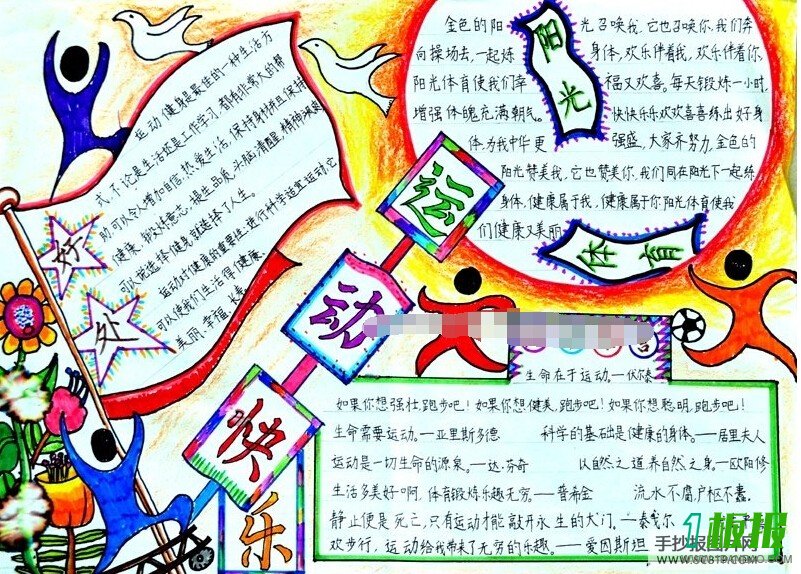 运动健身是最佳的一种生活方
式,不论是生活还是工作学习,都有非常大的帮
助,可以令人增加自信,热爱生活,保持身材,并且保持
健康,锻炼意志,提升品质,头脑清醒,精神爽爽
可以说选择健身就选择了人生。
运动对健康的重要性:进行科学适宜运动,它
可以使我们生活得健康、
美丽、幸福、长寿。
好处
金色的阳光召唤我,它也召唤你,我们奔
向操场去,一起炼身体,欢乐伴着我,欢乐伴着你
阳光体育使我们幸福又欢喜。每天锻炼一小时,
增强体魄充满朝气。快快乐乐欢欢喜喜练出好身
体为我中华更强盛,大家齐努力,金色的
阳光赞美我,它也赞美你,我们同在阳光下一起练
身体,健康属于我,健康属于你,阳光体育使我
们健康又美丽
阳光
体育
运动快乐
言
生命在于运动。—伏尔泰
如果你想强壮,跑步吧!如果你想健美,跑步吧!如果你想聪明,跑步吧!
生命需要运动。—亚里斯多德 科学的基础是健康的身体。—居里夫人
运动是一切生命的源泉。—达·芬奇 以自然之道,养自然之身—欧阳修
生活多美好啊,体育锻炼乐趣无穷。—普希金 流水不腐,户枢不蠹。
静止便是死亡,只有运动才能敲开永生的大门。—泰戈尔
欢步行,运动给我带来了无穷的乐趣。—爱因斯坦
1板报
手抄报图片网